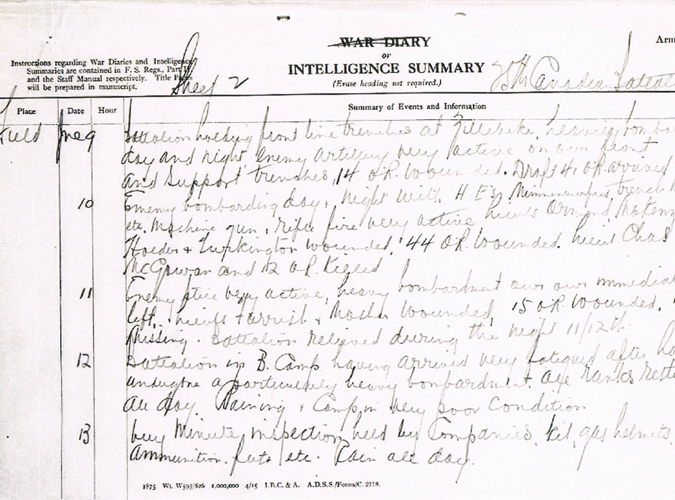 WAR DIARY
or
INTELLIGENCE SUMMARY
(Erase heading not required.)
Instructions regarding War Diaries and Intelligence
Summaries are contained in F. S. Regs., Part II
and the Staff Manual respectively. Title Pages
will be prepared in manuscript.
Sheet 2
Canadian
Place Date Hour Summary of Events and Information
Field June 9 Battalion holding front line trenches at Zillebeke, heavy
day and night, Enemy artillery very active on our front
and support trenches, 14 O.R. Wounded. Draft 41 O.R. arrived
10 Enemy bombarding day & night with H E's, Minnenwerfers, trench
etc. Machine gun & rifle fire very active Lieuts Ormond,
Holder & Wounded, 44 O.R. Wounded. Lieut Chas
McGowan and 12 O.R. Killed
11 Enemy very active, heavy bombardment our immediate
left. Lieuts & Wounded, 15 O.R. Wounded,
Missing. Battalion relieved during the night 11/12th
12 Battalion in B. Camp having arrived very fatigued after
undergone a particularly heavy bombardment. All ranks
all day. Raining & Camp in very poor condition
13 Very Minute inspection held by Companies, kit, gas helmets,
Ammunition, feet etc. Rain all day.
1875 Wt. W593/826 1,000,000 4/15 J.B.C. & A. A.D.S.S./Forms/C. 2118.